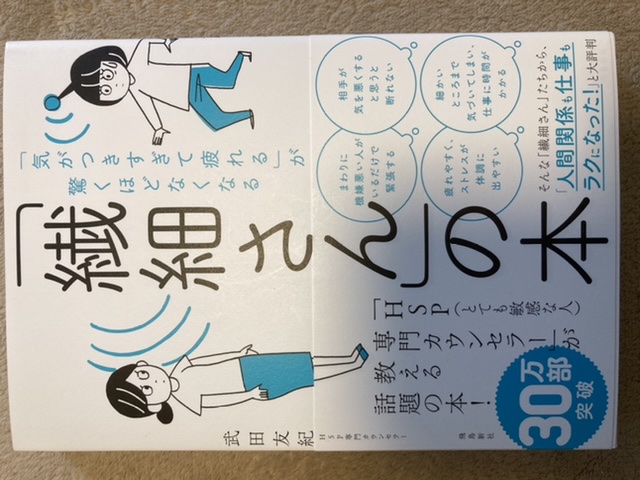 「気がつきすぎて疲れる」が
驚くほどなくなる
「繊細さん」の本
武田友紀
HSP専門カウンセラー
相手が
気を悪くする
と思うと
断れない
細かい
ところまで
気づいてしまい、
仕事に時間が
かかる
まわりに
機嫌悪い人が
いるだけで
緊張する
疲れやすく、
ストレスが
体調に
出やすい
そんな「繊細さん」たちから、
「人間関係も仕事も
ラクになった!」と大評判
「HSP(とても敏感な人)
専門カウンセラー」が
教える
話題の本!
30万部
突破
飛鳥新社